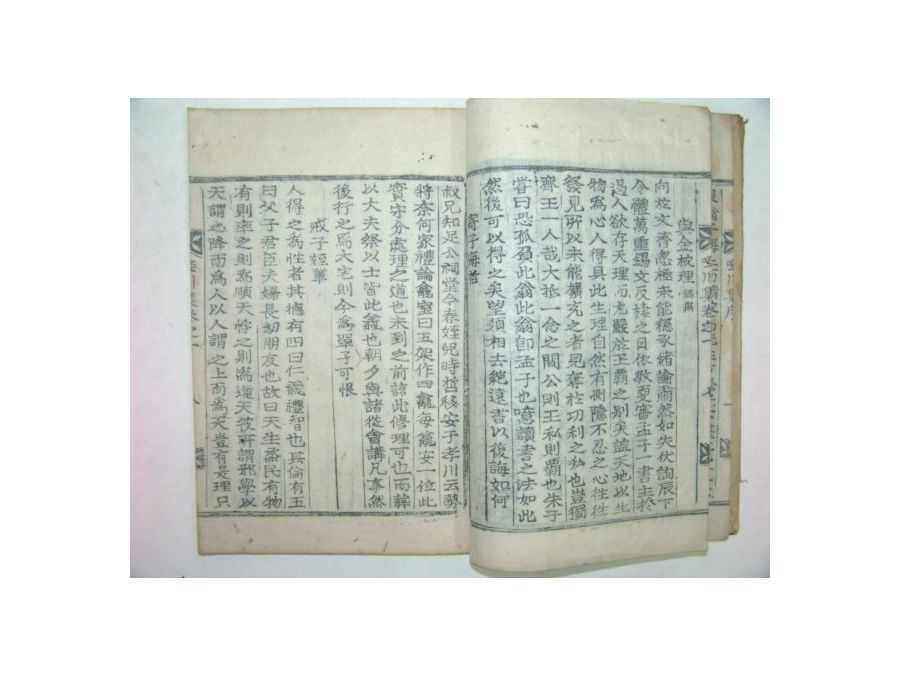 與金梭理
向於文
令體萬重錫文反接之日依教更審孟子一書主於
遏人欲存天理而尤嚴於王霸之別矣盖天地以生
物爲心人得具此生理自然有惻隱不忍之心性
發見所以未能擴充之者見奪於功利之私也豈獨
齊王一人哉大抵一念之間公則王私則覇也朱子
嘗曰恐孤負此翁此翁卽孟子也噫讀書之法如此
然後可以得之矣望須相去絶遠書以復誨如何
寄子
叔兄知足公祠堂今春姪兒時哲移安于孝川云勢
將奈何家禮論龕室曰五架作四龕每龕安一位此
實守分處理之道也未到之前諒此修理可也而葬
以大夫祭以士皆此義也朝夕與諸從會講凡事然
後行之爲大宅則今爲單子可恨
戒子姪輩
人得之爲性者其德有四曰仁義禮智也其倫有五
曰父子君臣夫婦長幼朋友也故曰天生烝民有物
有則率之則爲順天悖之則爲逆天彼所謂邪學以
天謂之降而爲人以人謂之上而爲天豈有是理只